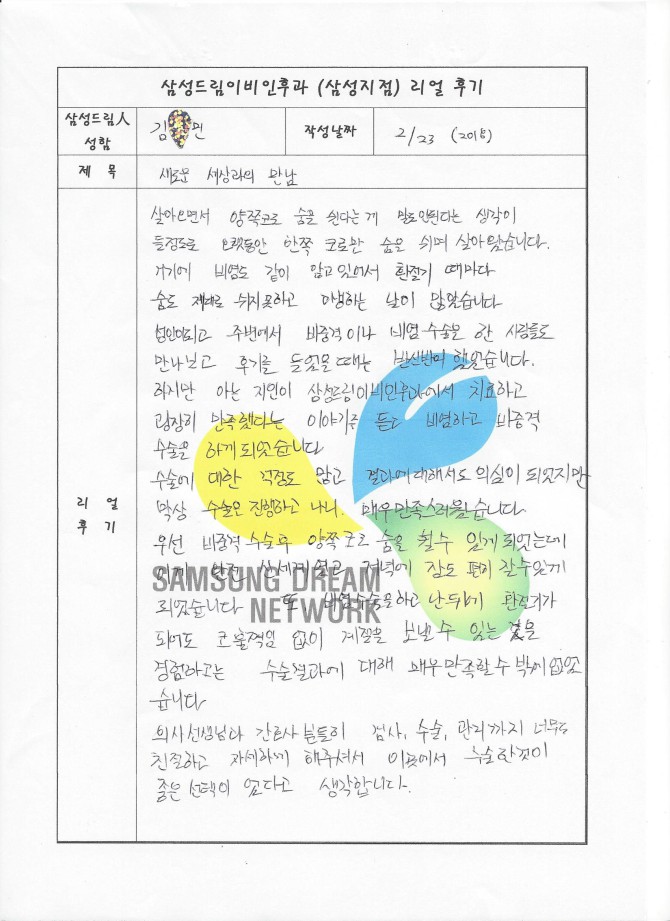 삼성드림이비인후과 (삼성지점) 리얼 후기
삼성드림人
성함
김 민
작성날짜
2/23 (2018)
제 목
새로운 세상과의 만남
리 얼
후 기
살아오면서 양쪽코로 숨을 쉰다는게 말도안된다는 생각이
들정도로 오랫동안 한쪽 코로만 숨을 쉬며 살아왔습니다.
거기에 비염도 같이 앓고있어서 환절기 때마다
숨도 제대로 쉬지못하고 고생하는 날이 많았습니다
성인이되고 주변에서 비중격이나 비염수술을 한 사람들도
만나보고 후기를 들었을때는 반신반의 했었습니다.
하지만 아는 지인이 삼성드림이비인후과에서 치료하고
굉장히 만족했다는 이야기를 듣고 비염하고 비중격
수술을 하게되었습니다
수술에 대한 걱정도 많고 결과에대해서도 의심이 되었지만
막상 수술을 진행하고 나니, 매우만족스러웠습니다
우선 비중격 수술후 양쪽코로 숨을 쉴수 있게되었는데
이게 완전 신세계였고 저녁에 잠도 편히 잘수있게
되었습니다 또, 비염수술을하고 난뒤에 환절기가
되어도 코훌쩍임 없이 계절을 보낼수 있는 것을
경험하고는 수술결과에 대해 매우만족할수밖에없었
습니다
의사선생님과 간호사분들히 검사, 수술, 관리까지 너무도
친절하고 자세하게 해주셔서 이곳에서 수술한것이
좋은선택이 였다고 생각합니다.
SAMSUNG DREAM
NETWORK